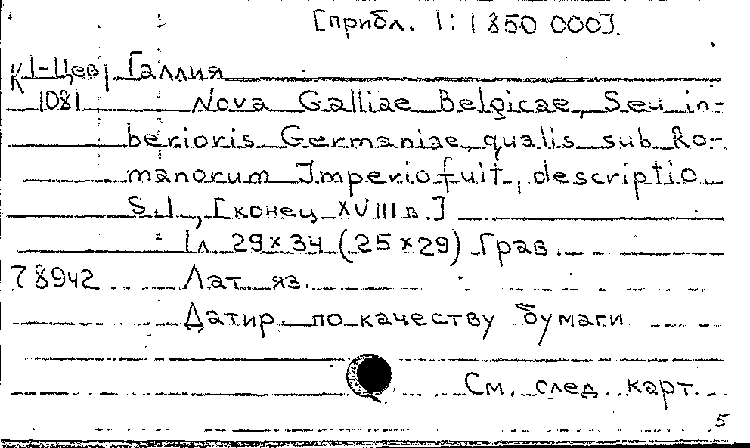 [прибл. 1:1 850 000].
К 1-Цев Галлия
1081 Nova Galliae Belgicae, Seu in-
berioris Germaniae, qualis sub Ro-
manorum Imperio fuit, descriptio
S.l., [конец XVIII в.]
1 л 29×34 (25×29) Грав.
78942 Лат яз.
Датир. по качеству бумаги
См. след. карт.
5